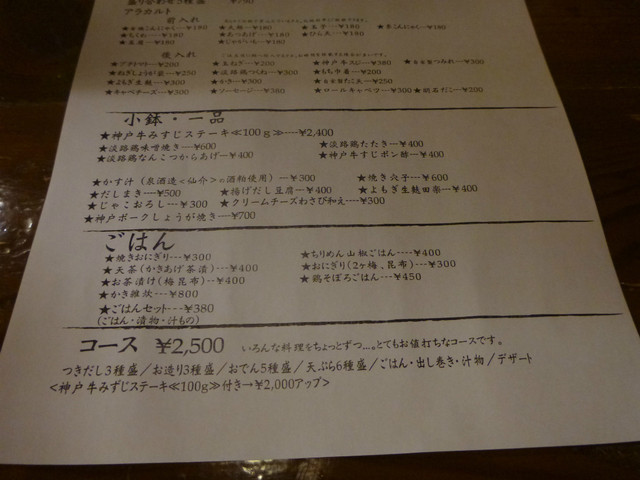 盛り合わせ5種盛 ¥750
アラカルト
前入れ
★ちくわ---¥180 ★あつあげ---¥180 ★ひら天---¥180
★じゃがいも---¥180
後入れ
★プチトマト---¥200 ★玉ねぎ---¥250 ★神戸牛スジ---¥380
★ねぎしょうが天---¥250 ★淡路鶏つくね---¥300 ★もち巾着---¥200
★よもぎ生麩---¥300
★キャベチーズ---¥300 ★ソーセージ---¥380 ★ロールキャベツ---¥300 ★明石だこ---¥200
小鉢・一品
★神戸牛みすじステーキ≪100g≫---¥2,400
★淡路鶏味噌焼き---¥600 ★淡路鶏たたき---¥400
★淡路鶏なんこつからあげ---¥400 ★神戸牛すじポン酢---¥400
★かす汁（泉酒造<仙介>の酒粕使用）---¥300 ★焼き穴子---¥600
★だしまき---¥500 ★揚げだし豆腐---¥400 ★よもぎ生麩田楽---¥400
★じゃこおろし---¥300 ★クリームチーズわさび和え---¥300
★神戸ポークしょうが焼き---¥700
ごはん
★焼きおにぎり---¥300 ★ちりめん山椒ごはん----¥400
★天茶(かきあげ茶漬)---¥400 ★おにぎり(2ヶ梅、昆布)---¥300
★お茶漬け(梅昆布)---¥400 ★鶏そぼろごはん---¥450
★かき雑炊---¥800
★ごはんセット---¥380
(ごはん・漬物・汁もの)
コース ¥2,500 いろんな料理をちょっとずつ…。とてもお値打ちなコースです。
つきだし3種盛／お造り3種盛／おでん5種盛／天ぷら6種盛／ごはん・出し巻き・汁物／デザート
<神戸牛みずじステーキ≪100g≫付き→¥2,000アップ>